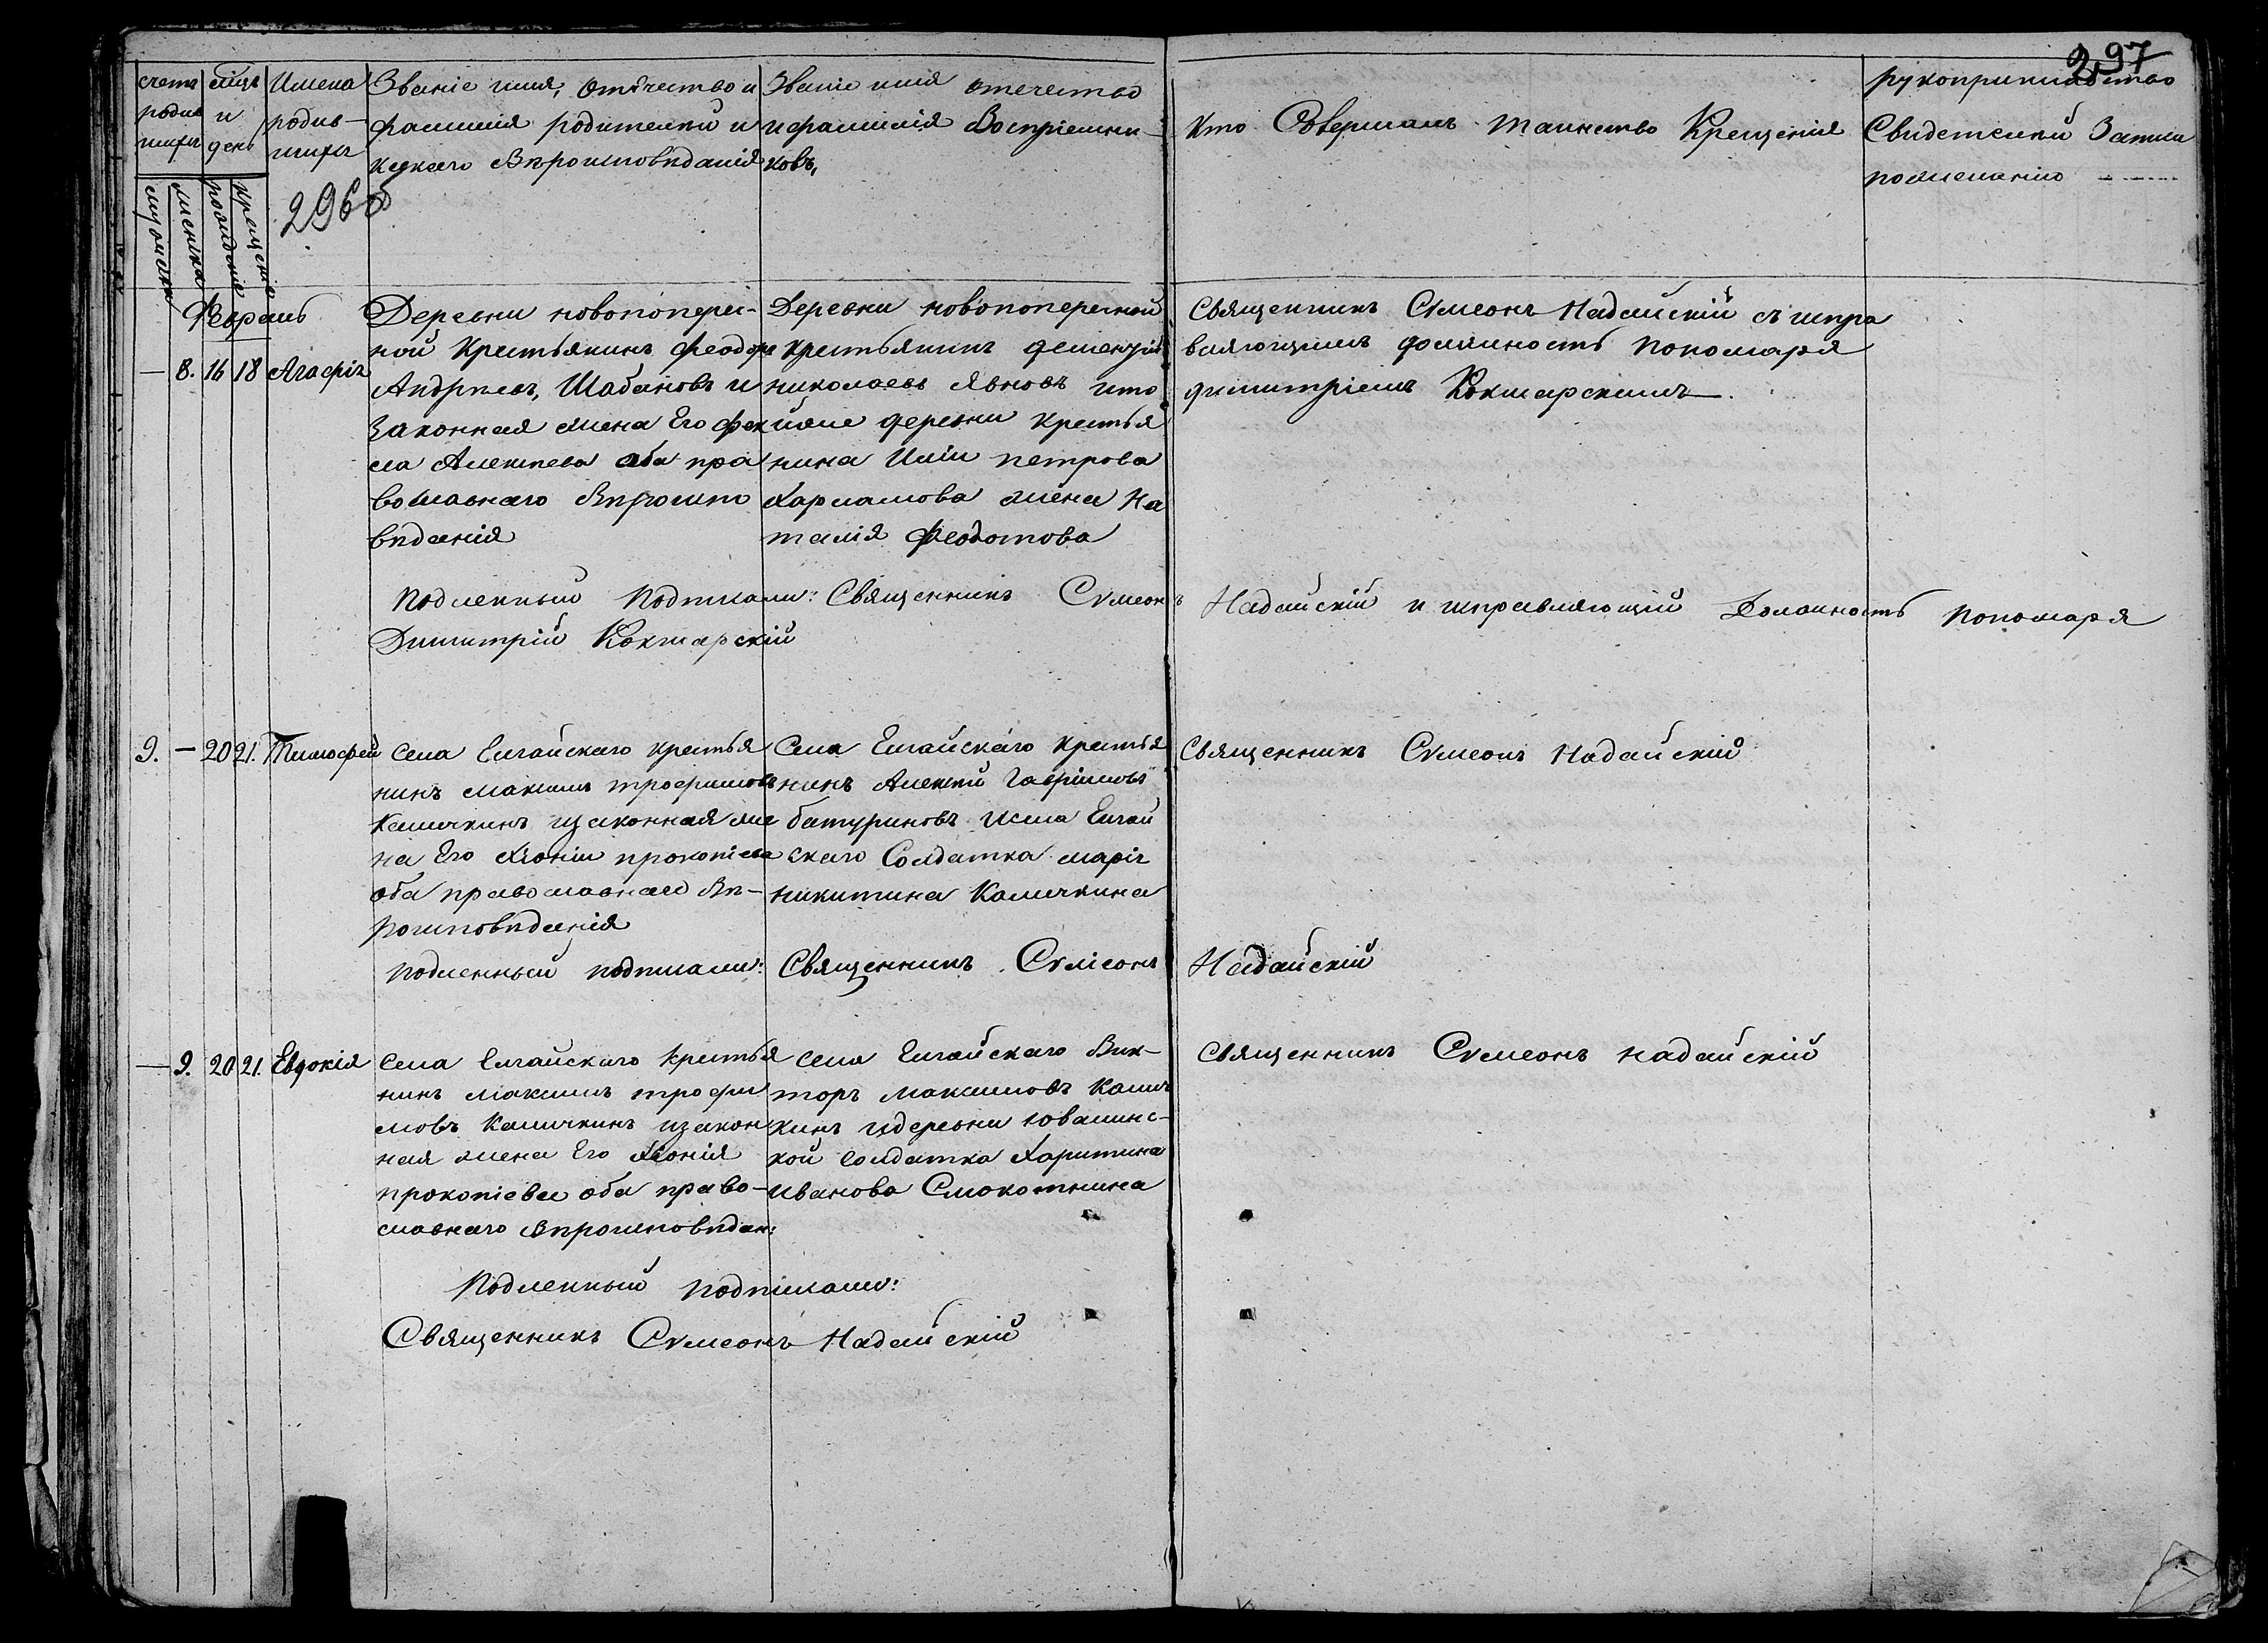 297
счетъ родив шихся
мѣсяцъ и день
Имена родив- шихся
Званіе имя, отѣчество и фамилія родителей и какаго Вѣроисповѣданія
Званіе имя отечество и фамилія Воспріемни- ковъ,
Кто Совершалъ таинство Крещенія
рукоприкладство Свидетелей Записи по желанію
мужеска
женска
рожденія
крещенія
296 об
Февраль
— 8. 16 18 Агафія
Деревни новопопереч-
ной Крестьянинъ Феодоръ
Андреевъ, Шабановъ и
Законная жена Его Фек
ла Алексѣева оба пра
вославнаго Вѣроиспо
вѣданія
Деревни новопоперечной
крестьянинъ дементій
николаевъ Явновъ ито
йже деревни крестья
нина Иліи петрова
Харламова жена На
талія Федотова
Священникъ Сѵмеонъ Надеийскій съ испра
вляющимъ должность пономаря
димитріемъ Кокшарскимъ
подленный подписали: Священникъ Сѵмеонъ Надеийскій и исправляющій Должность пономаря
Димитрій Кокшарскій
9. — 20 21. Тимофей
Села Елгайскаго крестья
нинъ максимъ трофимовъ
Камичкинъ изаконная же
на Его Хіонія прокопіева
оба православнаго Вѣ-
роисповѣданія
Села Елгайскаго крестья
нинъ Алексѣй Гавріиловъ
батуриновъ исела Елгай
скаго Солдатка марія
никитина Камичкина
Священникъ Сѵмеонъ Надеийскій
подленный подписали: Священникъ Сѵмеонъ Надеийскій
— 9. 20 21. Евдокія
Села Елгайскаго крестья
нинъ Максимъ трофи
мовъ Камичкинъ изакон
ная жена Его Хіонія
прокопіева оба право-
славнаго Вѣроисповѣдан:
села Елгайскаго Вик-
торъ максимовъ Камич
кинъ идеревни ювалинс-
кой солдатка Харитина
Иванова Смокотнина
Священникъ Сѵмеонъ надеийскій
Подленный подписали:
Священникъ Сѵмеонъ Надеийскій